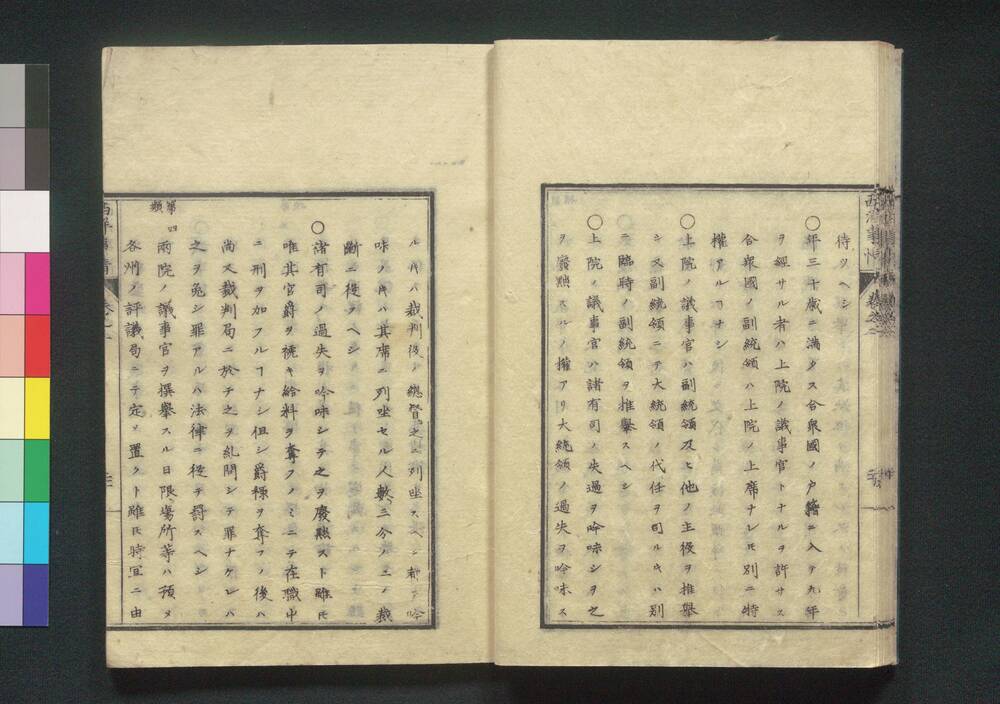 待ツヘシ
〇年三十歳ニ満タス合衆國ノ户籍ニ入テ九年
ヲ經サル者ハ上院ノ議事官トナルヲ許サス
合衆國ノ副統領ハ上院ノ上席ナレ𪜈別ニ特
權アルヿナシ
〇上院ノ議事官ハ副統領及ヒ他ノ主役ヲ推擧
シ又副統領ニテ大統領ノ代任ヲ司ルㄑハ別
ニ臨時ノ副統領ヲ推擧スヘシ
〇上院ノ議事官ハ諸有司ノ失過ヲ吟味シヲ之
ヲ貶黙スルノ權アリ大統領ノ過失ヲ吟味ス
ルㄑハ裁判役ノ總督之ニ列坐スヘシ都テ吟
味ノㄑハ其席ニ列坐セル人數三分ノ二ノ裁
斷ニ從フヘシ
〇諸有司ノ過失ヲ吟味シテ之ヲ廢黙スト雖𪜈
唯其官爵ヲ褫キ給料ヲ奪フノミニテ在職中
ニ刑ヲ加フルヿナシ但シ爵祿ヲ奪フノ後ハ
尚又裁判局ニ於テ之ヲ糺問シテ罪ナケレハ
之ヲ免シ罪アルハ法律ニ從テ罸スヘシ
第四類
兩院ノ議事官ヲ撰擧スル日限塲所等ハ預メ
各州ノ評議局ニテ定メ置クト雖𪜈時宜ニ由